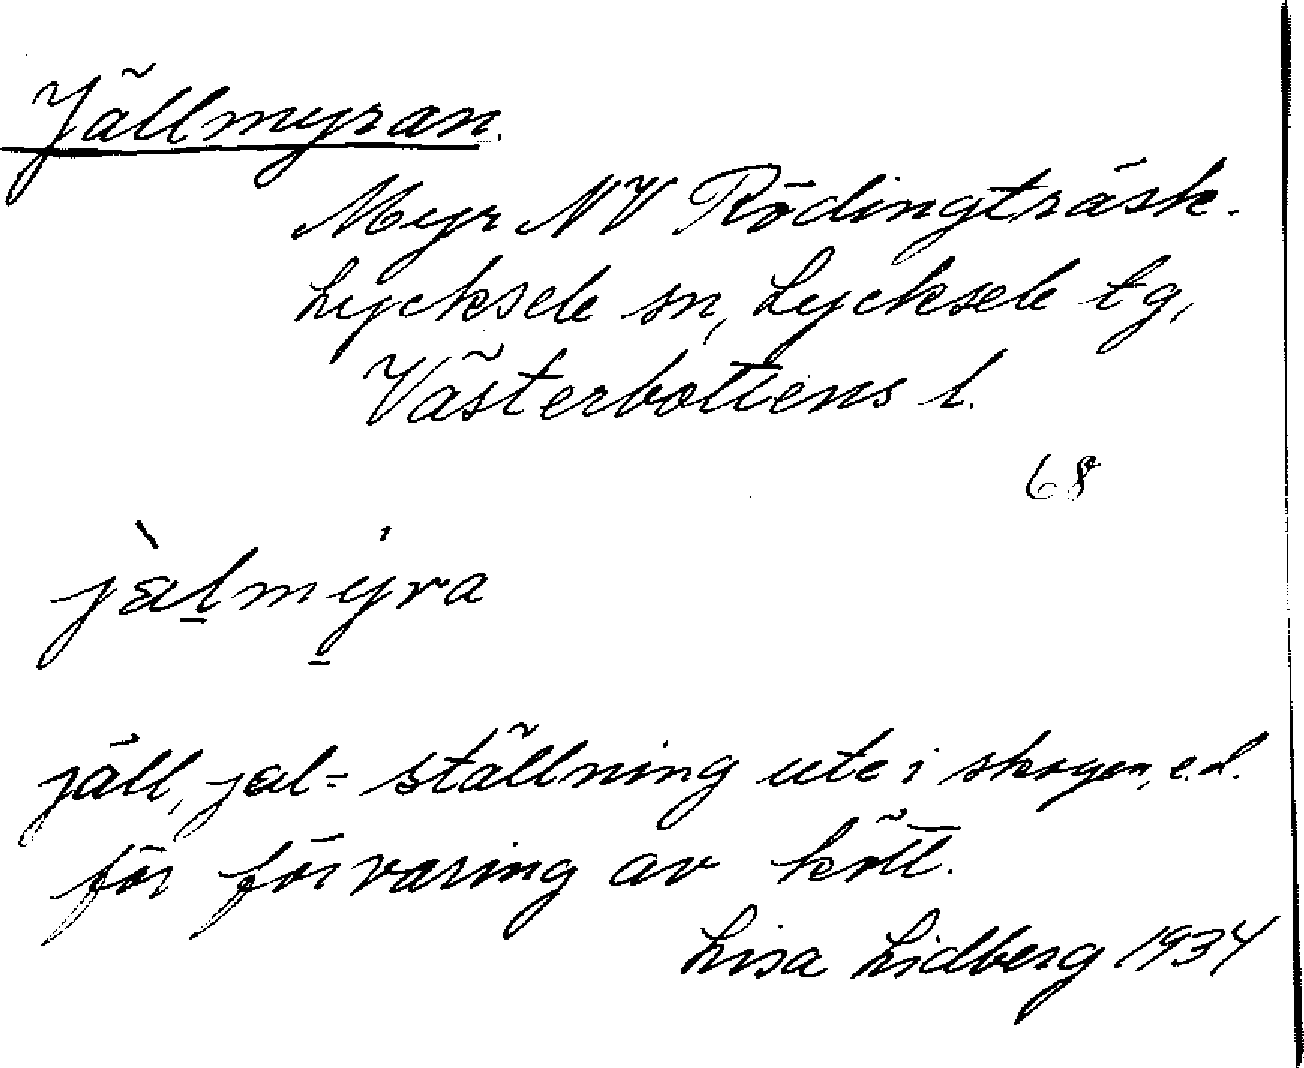 Jällmyran.
Myr NV Rödingträsk.
Lycksele sn, Lycksele tg,
Västerbottens l.
68
jæ̀l̠mẏ̠ra
jäll, jæl = ställning ute i skogen, e.d.
för förvaring av kött.
Lisa Lidberg 1934